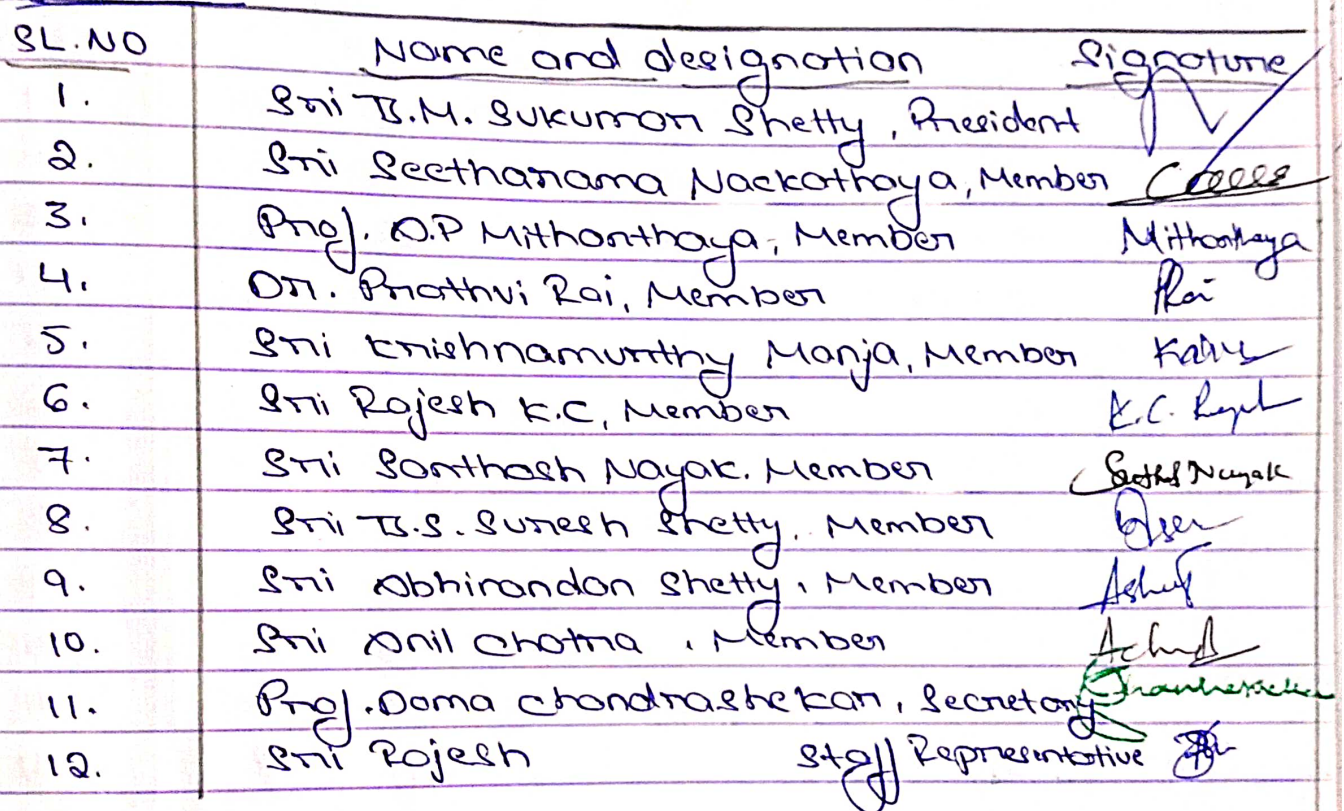 SL.NO Name and designation Signature
1. Sri B.M. Sukumar Shetty, President
2. Sri Seetharama Nackathaya, Member
3. Prof. A.P Mithanthaya, Member Mithanthaya
4. Dr. Prathvi Rai, Member Rai
5. Sri Krishnamurthy Manja, Member
6. Sri Rajesh K.C, Member K.C. Rajesh
7. Sri Santhosh Nayak. Member Santhosh Nayak
8. Sri B.S. Suresh Shetty, Member
9. Sri Abhinandan Shetty, Member
10. Sri Anil Chatra, Member
11. Prof. Doma Chandrashekar, Secretary
12. Sri Rajesh Staff Representative